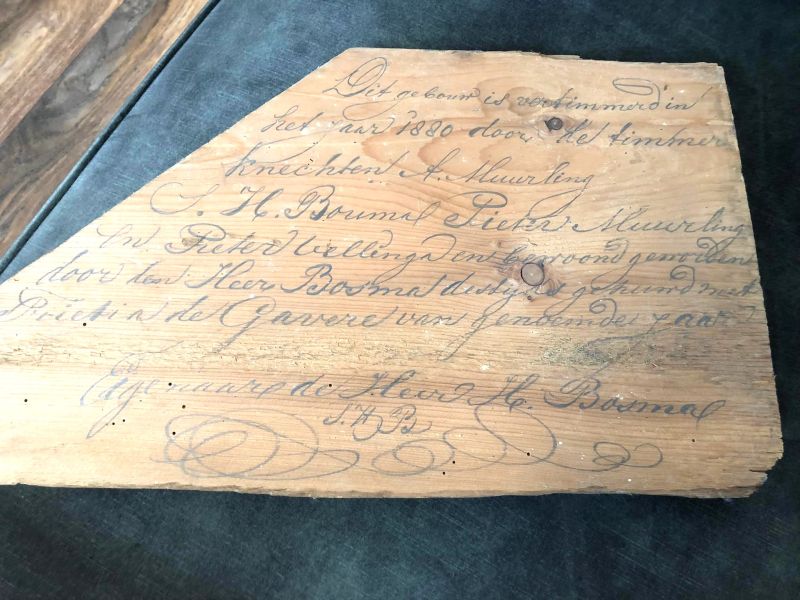 Dit gebouw is vertimmerd in
het jaar 1880 door de timmer
knechten A. Muurling
S. H. Bouma Pieter Muurling
en Pieter Wellinga en bewoond geworden
door den Heer Bosma destijds gehuurd met
de Gavere van genoemde jaar
Eigenaar de Heer H. Bosma
S. H. B